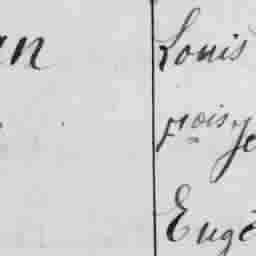 an Louis
Fçois Je
Eugè